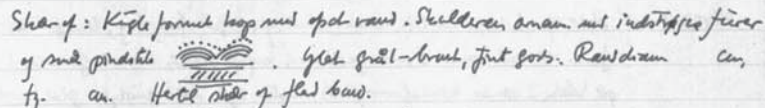 Skår af: Kugleformet kop med opst. rand. Skulderen ornam. med indstregne furer
og små pindstik. Glat grål-brunt, fint gods. Randdiam cm,
fz. cm. Hertil skår af flad bund.